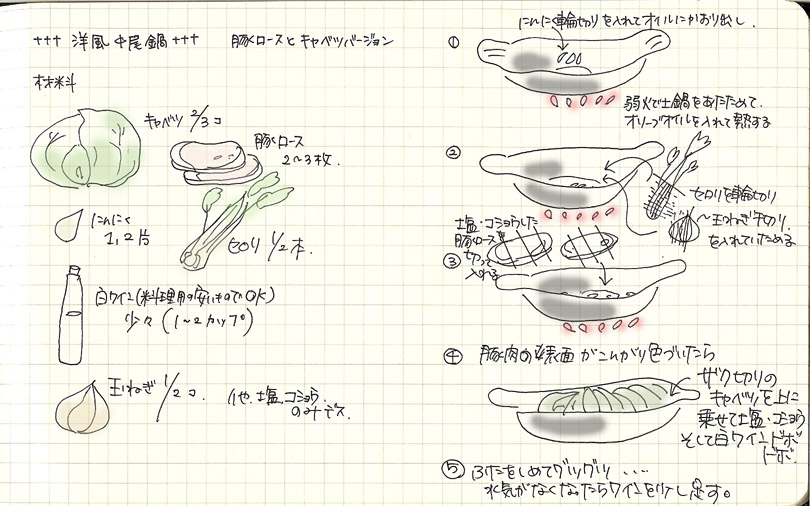 +++ 洋風 中尾鍋 +++ 豚ロースとキャベツバージョン
材料
キャベツ 2/3コ
豚ロース
2〜3枚.
にんにく
1,2片
セロリ 1/2本.
白ワイン(料理用の安いものでOK)
少々(1〜2カップ)
玉ねぎ 1/2コ.
他、塩、コショウ
のみデス.
①
にんにく輪切りを入れてオイルにかおり出し.
弱火で土鍋をあたためて.
オリーブオイルを入れて熱する
②
セロリを輪切り
〜玉ねぎ半切り.
を入れていためる.
③
塩・コショウした
豚ロースを
切って
入れる
④ 豚肉の表面がこんがり色づいたら
ザク切りの
キャベツを上に
乗せて塩・コショウ
そして白ワインドボ
ドボ.
⑤ ふたをしめてグツグツ ....
水気がなくなったらワインを少し足す。